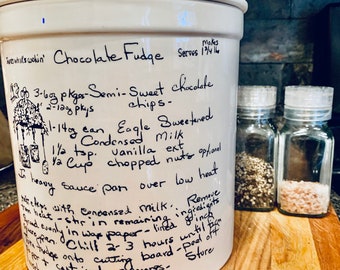 Chocolate Fudge
Makes
Serves 1 3/4 lbs
3-6oz pkges - Semi-Sweet chocolate
2-12oz pkgs chips-
1-14oz can Eagle Sweetened
Condensed Milk
1 1/2 tsp. Vanilla ext
1/2 Cup chopped nuts optional
In heavy sauce pan over low heat
with condensed milk. Remove
heat - stir in remaining ingredients
evenly in wax paper - lined 8 inch
Chill 2-3 hours until
onto cutting board - peel off
Store